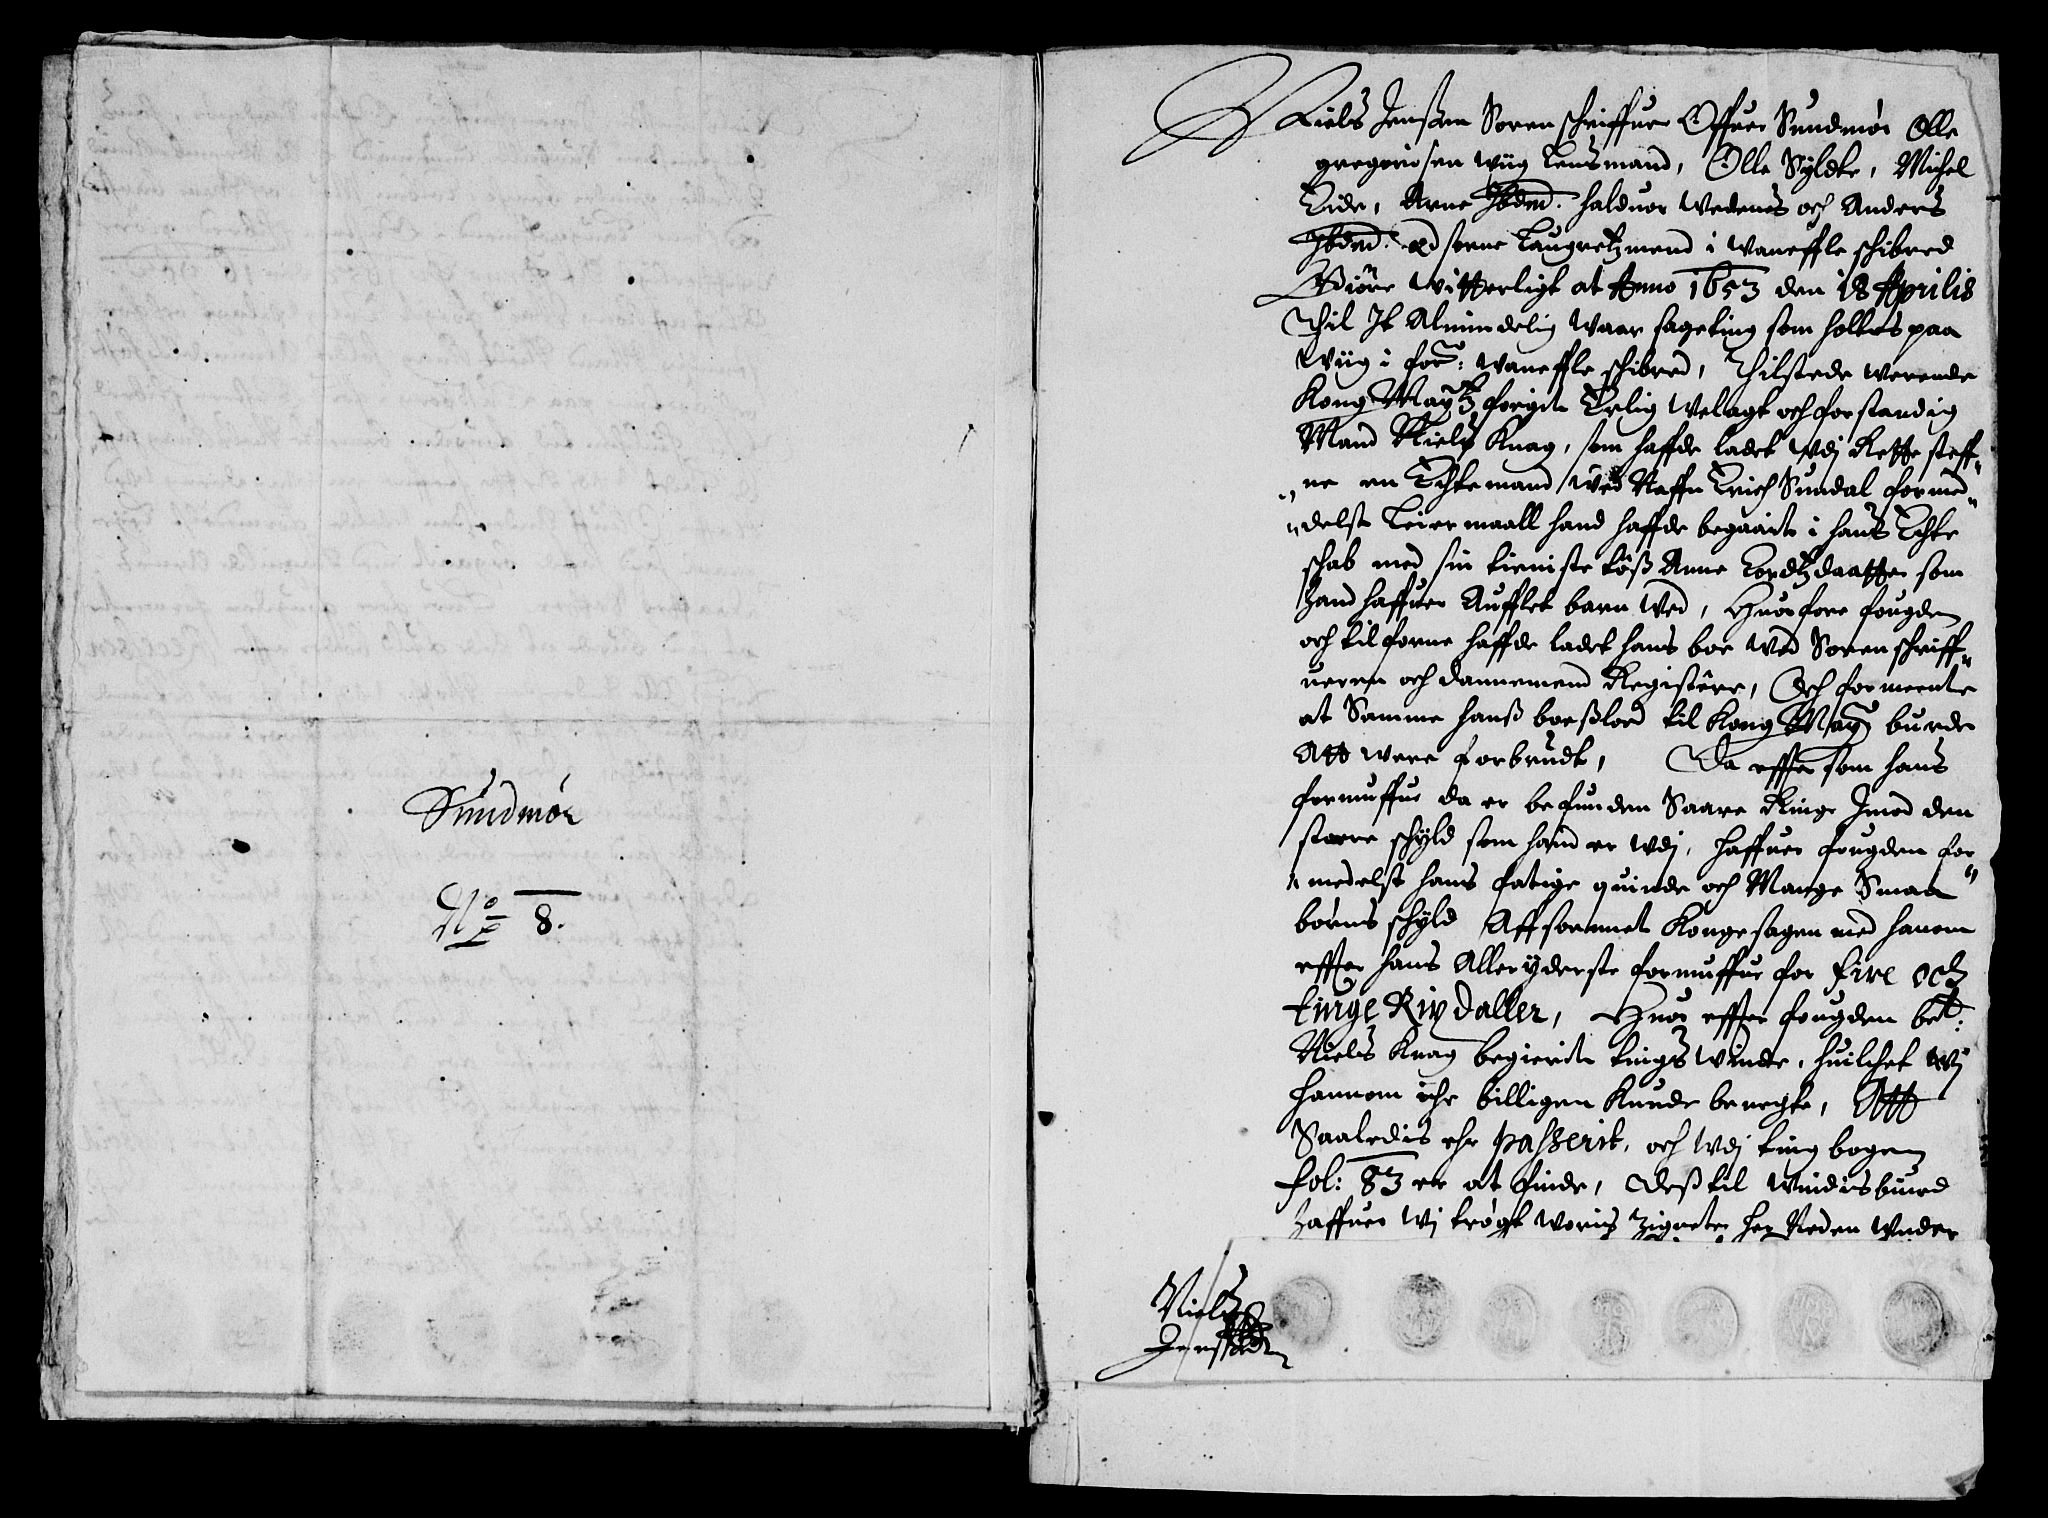 Sundmör
No 8.
Niels Jenssen Sorenschriffuer Offuer Sundmör Olle
gregoriosen wiig Lensmand, Olle Syldte, Michel
Eide, Arne Ibdm. halduor Wedenes och Anders
Ibdm. Edsorne Laugretzmend i Waneffle schibred
Giöre Witterligt at Anno 1653 den 18 Aprilis
Thil It Almindelig Waar sageting som holtes paa
Wiig i for: Waneffle schibred, Thilstede Werende
Kong May:tz fogit Erlig Welagt och forstandig
Mand Niels Knag, som haffde ladet Wdj Rette steff„
„ne en Echtemand Wed Naffn Erich Sundal formed„
„delst Leiermaall hand haffde begaait i hans Echte
schab med sin tieniste töß Anne Tordtzdaatter som
hand haffuer Aufflet barn Wed, Huorfore fougden
och tilforne haffde ladet hans boe Wed Sorenschriff„
ueren och dannemend Registere, Och formeente
at Samme hanß boeßlod til Kong May: burde
Att were forbrudt, Da effter som hans
formuffue da er befunden Saare Ringe Imod den
storre schyld som hand er Wdj, haffuer fougden for„
„medelst hans fatige quinde och Mange Smaa
börns schyld Affsonnet Kongesagen med hanom
effter hans Alleryderste formuffue for fire och
tiuge Rixdaller, Huor effter fougden bet:
Niels Knag begierite tings Winde, huilchet Wj
hannom iche billigen Kunde benegte, Att
Saaledis ehr passerit, och Wdj tingbogen
fol: 83 er at finde, Deß til Windisbiurd
haffuer Wj trögt Woris Zigneter her Neden Wnder
Niels
Jensen